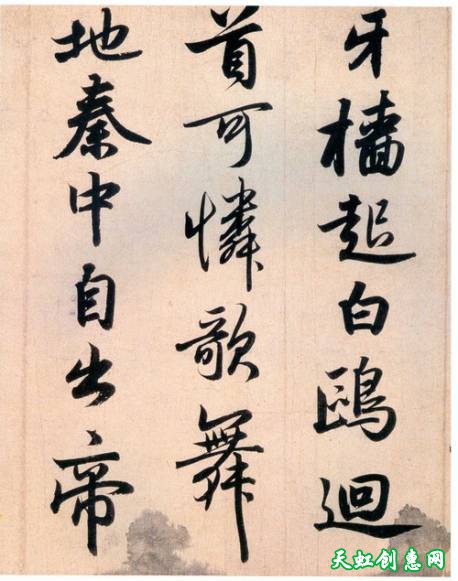 牙樯起白鷗迴
首可憐歌舞
地秦中自古帝
天虹创惠网